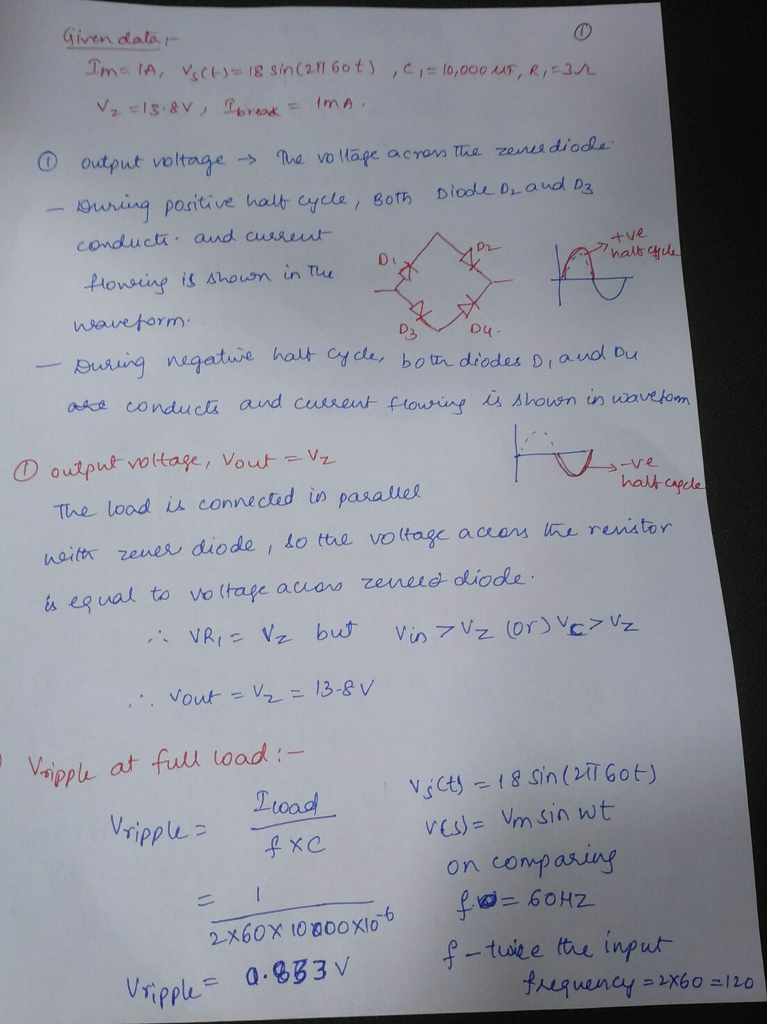 ①
Given data,-
Im= 1A, Vs(t)= 18 sin(2π60t), C1= 10,000 μF, R1=3Ω
Vz =13.8V, Ibreak = 1mA.
① output voltage → The voltage across the zener diode.
- During positive half cycle, Both Diode D2 and D3
conducts. and current
flowing is shown in the
waveform.
D1 D2
D3 D4.
+ve
half cycle
- During negative half cycle, both diodes D1 and D4
conducts and current flowing is shown in waveform
-ve
half cycle
① output voltage, Vout = Vz
The load is connected in parallel
with zener diode, so the voltage across the resistor
is equal to voltage across zener diode.
∴ VR1 = Vz but Vin > Vz (or) Vc > Vz
∴ Vout = Vz = 13.8V
Vripple at full load :-
Vripple = Iload / f×C
= 1 / 2×60×10000×10^-6
Vripple = 0.833V
Vs(t) = 18 sin(2π60t)
V(s) = Vm sin wt
on comparing
f = 60HZ
f - twice the input
frequency = 2×60 = 120